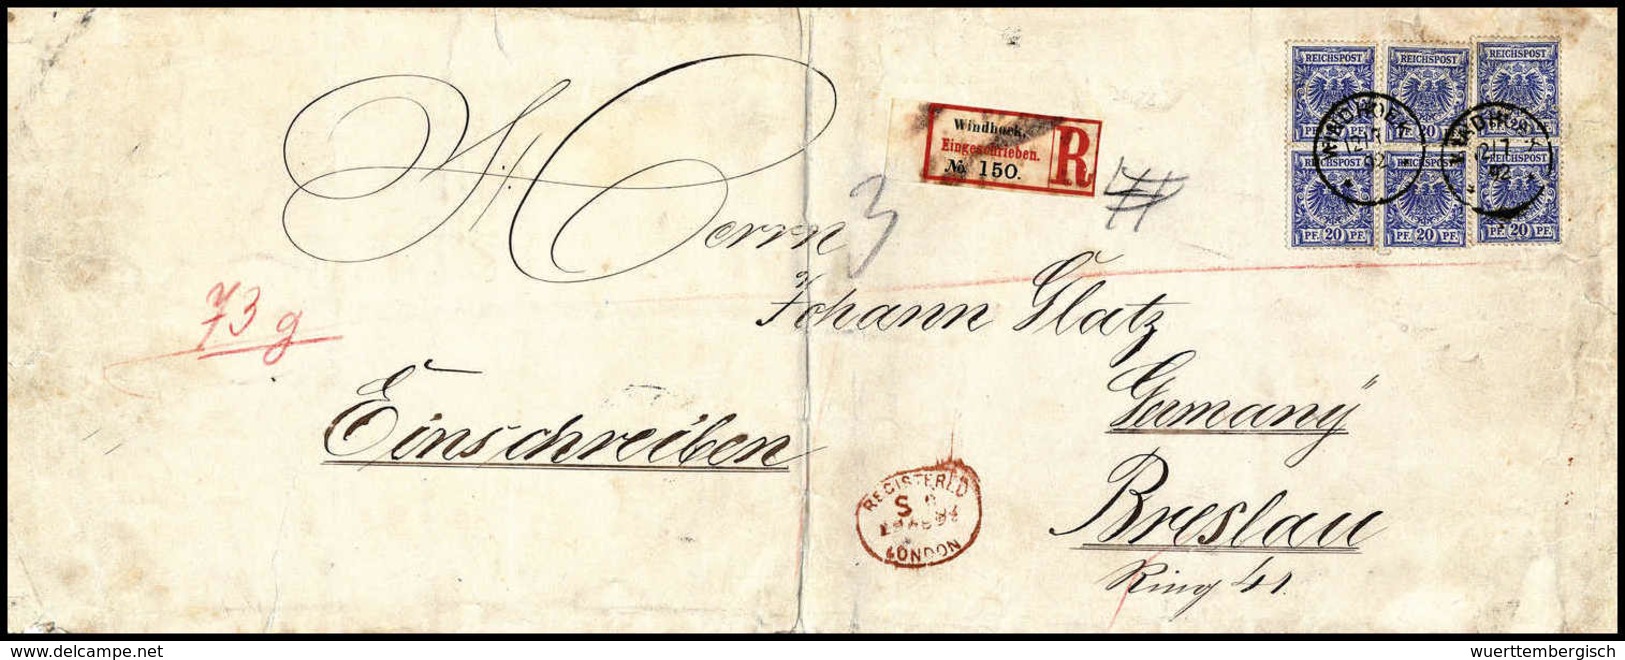 REICHSPOST REICHSPOST REICHSPOST
PF. 20 PF.
WINDHOEK
12/7
92
WINDHOEK
12/7
92
REICHSPOST REICHSPOST REICHSPOST
PF. 20 PF. PF. 20 PF. PF. 20 PF.
Windhoek.
Eingeschrieben.
No 150.
R
3
Herrn
Johann Glatz
73 g
Einschreiben
Germany
Breslau
Ring 41.
REGISTERED
LONDON
delcampe.net
wuerttembergisch